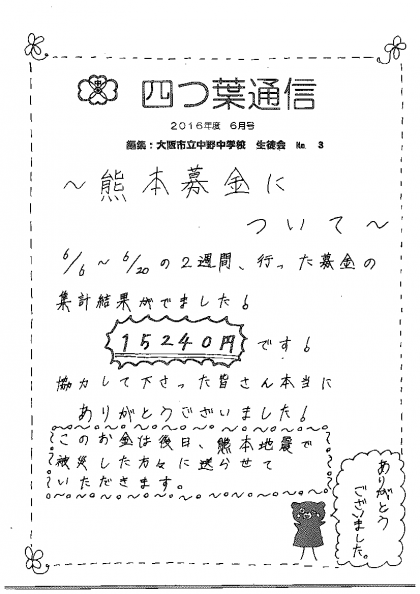 四つ葉通信
2016年度 6月号
編集：大阪市立中野中学校 生徒会 No. 3
～熊本募金に
ついて～
6/6～6/20の2週間、行った募金の
集計結果がでました!
15240円です!
協力して下さった皆さん本当に
ありがとうございました!
このお金は後日、熊本地震で
被災した方々に送らせて
いただきます。
ありがとう
ございました。